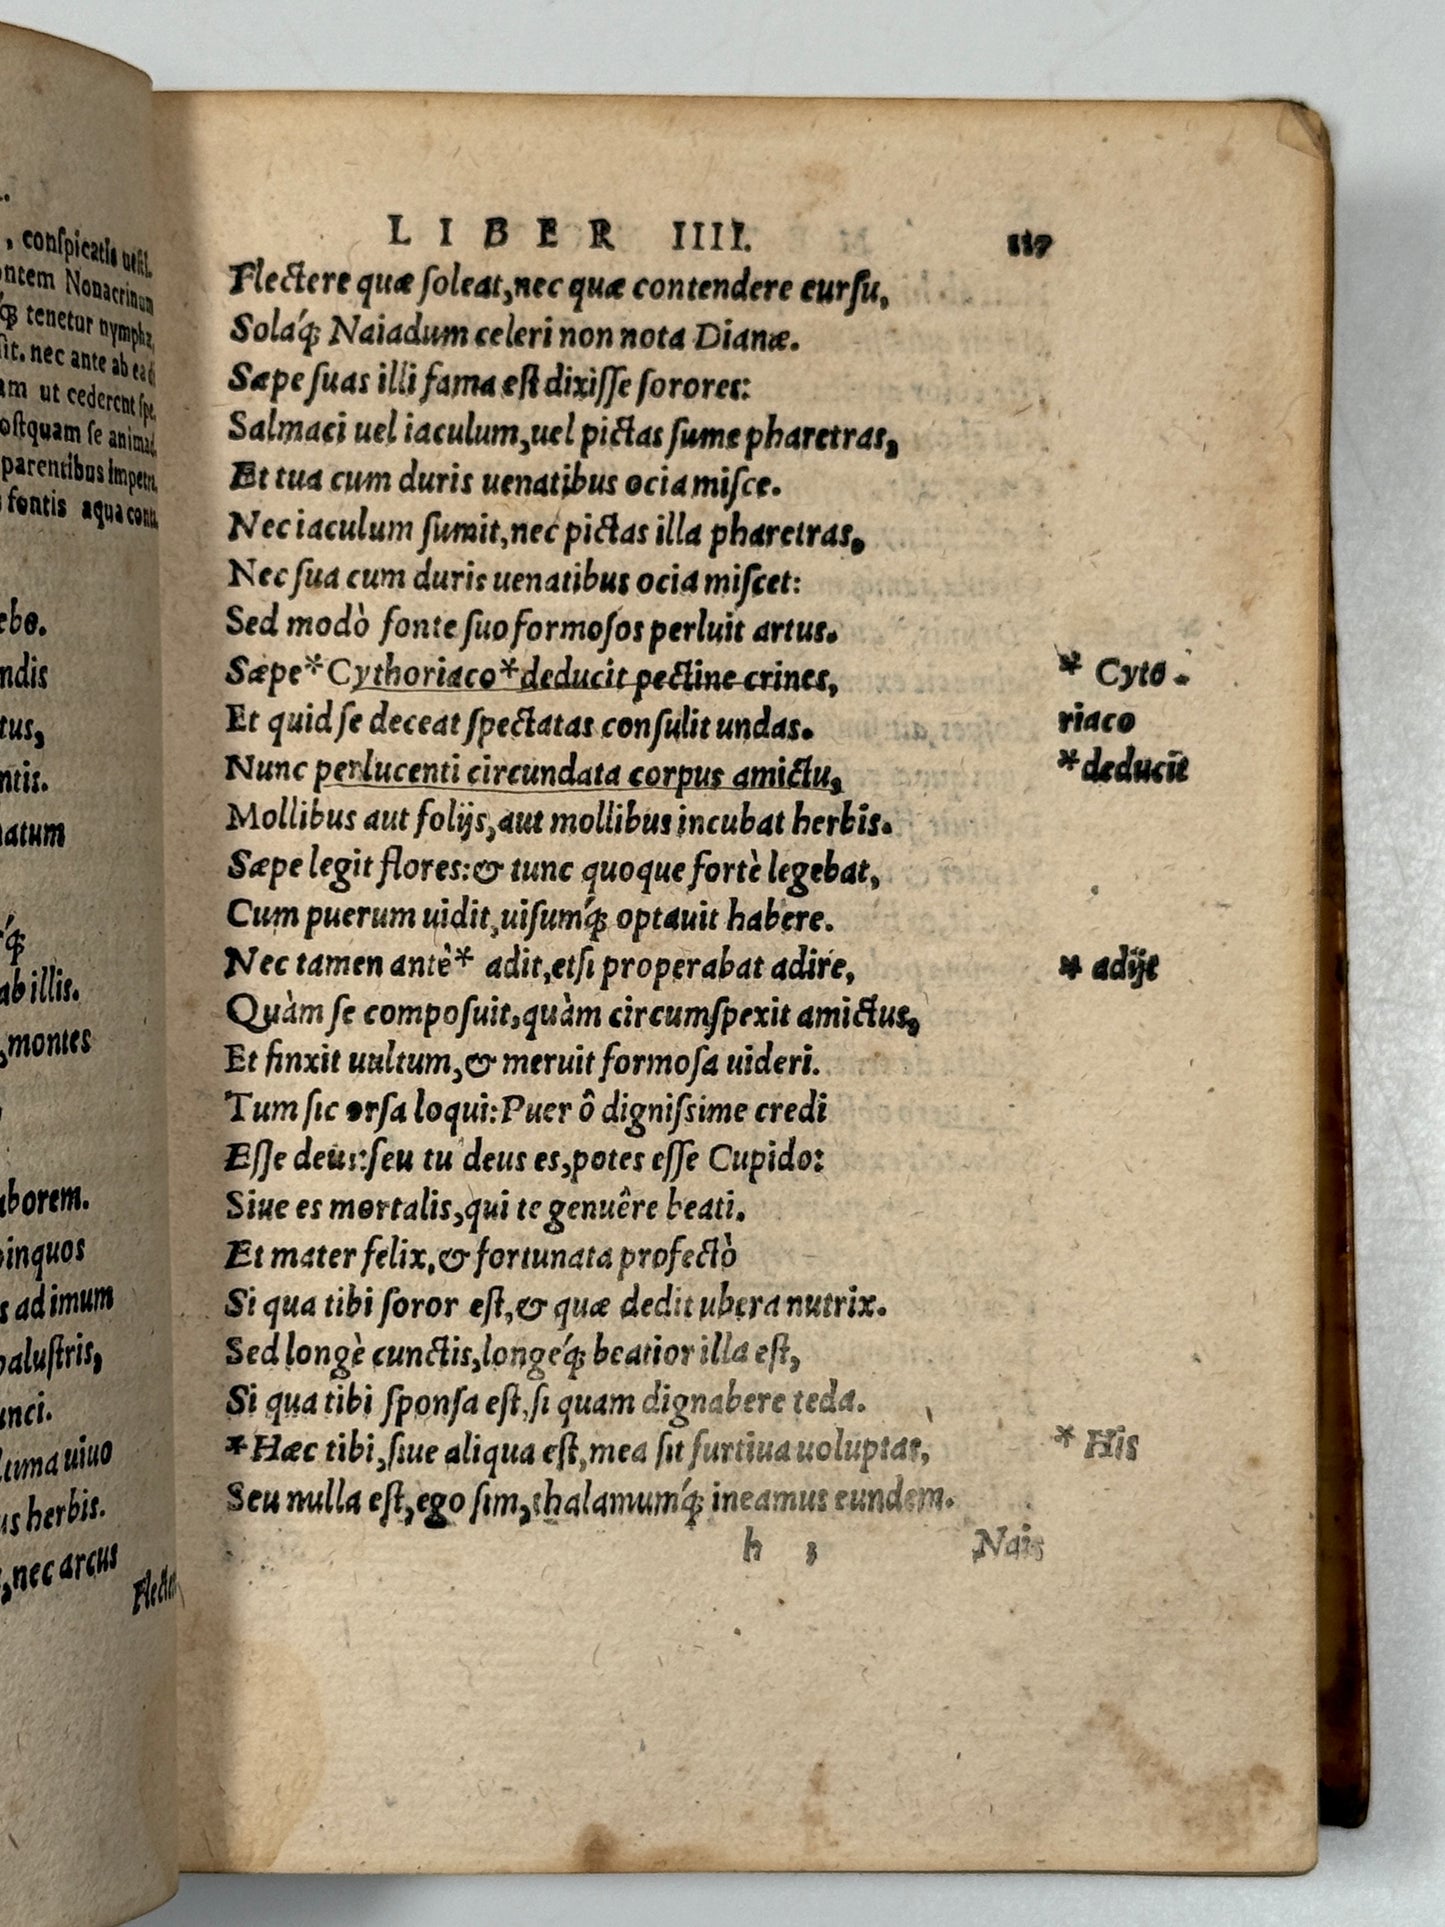 , conſpicatis ueſti.
ontem Nonacrinum
q́; tenetur nympha,
ſit. nec ante ab ea
am ut cederent ſpe,
oſtquam ſe animad,
parentibus impetra,
fontis aqua
ebo.
ndis
tus,
ntis.
natum
q́;
ab illis.
,montes
aborem.
pinquos
s ad imum
paluſtris,
unci.
ltima uiuo
us herbis.
,nec arcus
Flectere
LIBER IIII. 117
Flectere quæ ſoleat,nec quæ contendere curſu,
Soláq́; Naiadum celeri non nota Dianæ.
Sæpe ſuas illi fama eſt dixiſſe ſorores:
Salmaci uel iaculum,uel pictas ſume pharetras,
Et tua cum duris uenatibus ocia miſce.
Nec iaculum ſumit,nec pictas illa pharetras,
Nec ſua cum duris uenatibus ocia miſcet:
Sed modò fonte ſuo formoſos perluit artus.
Sæpe*Cythoriaco*deducit pectine crines,
Et quid ſe deceat ſpectatas conſulit undas.
Nunc perlucenti circundata corpus amictu,
Mollibus aut folijs,aut mollibus incubat herbis.
Sæpe legit flores:& tunc quoque fortè legebat,
Cum puerum uidit,uiſumq́; optauit habere.
Nec tamen antè* adit,etſi properabat adire,
Quàm ſe compoſuit,quàm circumſpexit amictus,
Et finxit uultum,& meruit formoſa uideri.
Tum ſic orſa loqui:Puer ô digniſsime credi
Eſſe deus:ſeu tu deus es,potes eſſe Cupido:
Siue es mortalis,qui te genuêre beati.
Et mater felix,& fortunata profectò
Si qua tibi ſoror eſt,& quæ dedit ubera nutrix.
Sed longè cunctis,longeq́; beatior illa eſt,
Si qua tibi ſponſa eſt,ſi quam dignabere teda.
*Hæc tibi,ſiue aliqua eſt,mea ſit furtiua uoluptas,
Seu nulla eſt,ego ſim,thalamumq́; ineamus eundem.
h 3 Nais
* Cyto-
riaco
*deducit
* adijt
* His